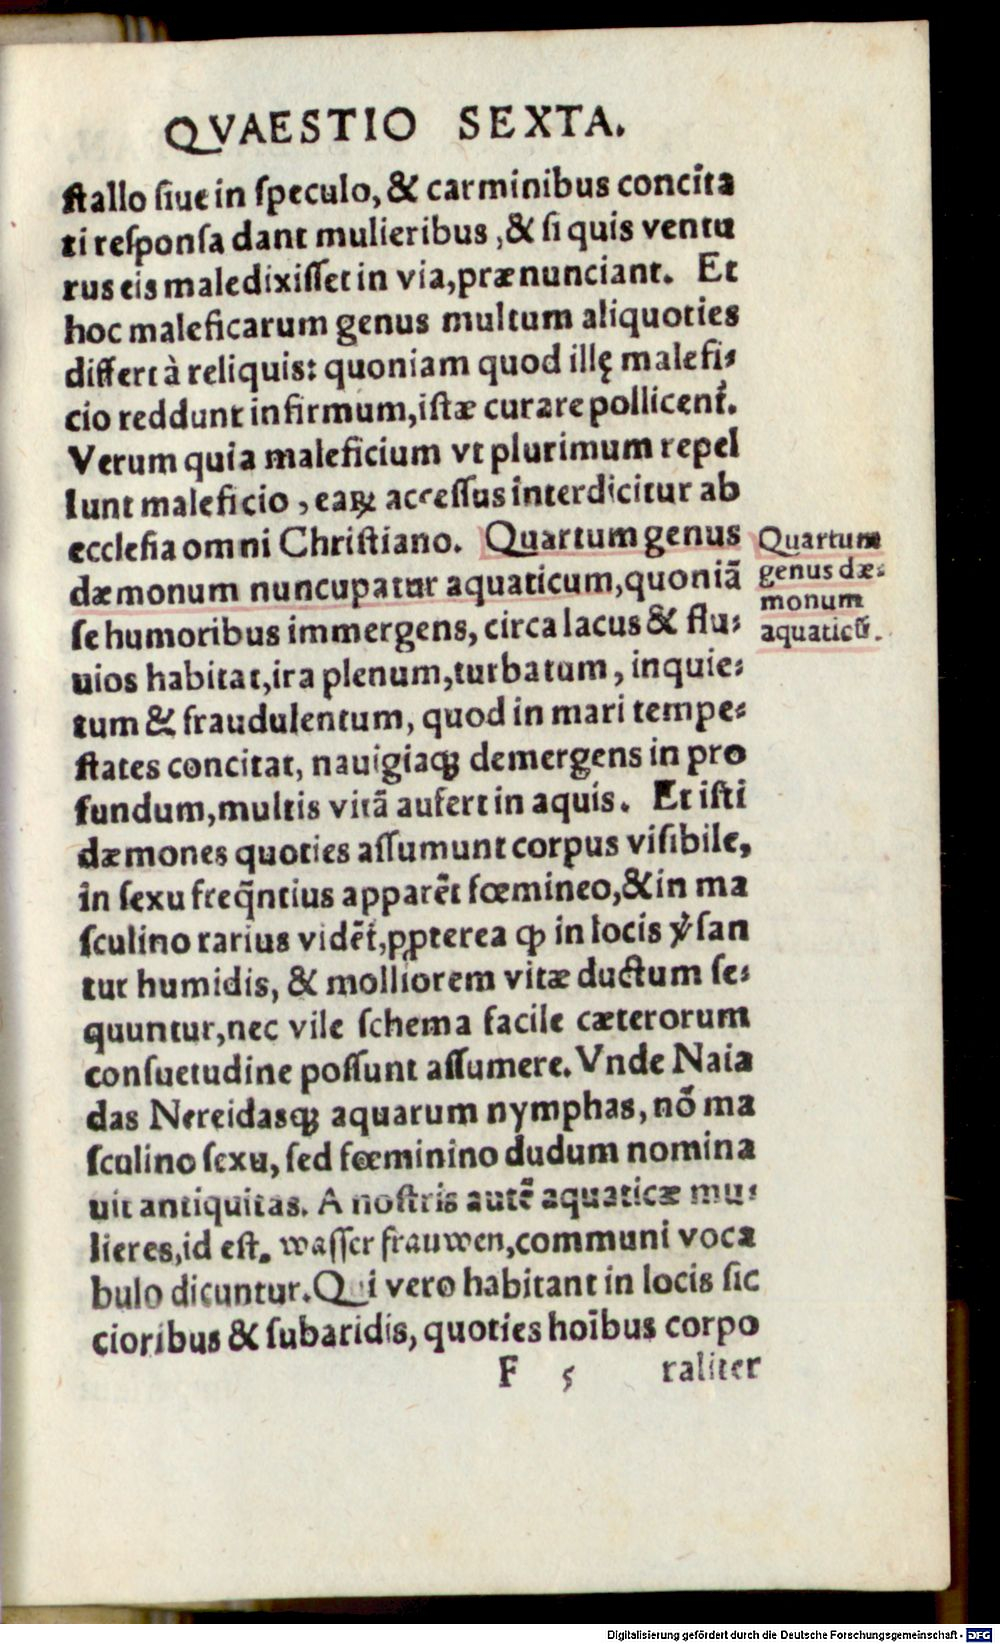 QVAESTIO SEXTA.
ſtallo ſiue in ſpeculo, & carminibus concita
ti reſponſa dant mulieribus, & ſi quis ventu
rus eis maledixiſſet in via, prænunciant. Et
hoc maleficarum genus multum aliquoties
differt à reliquis: quoniam quod illę malefi⸗
cio reddunt infirmum, iſtæ curare pollicent᷑.
Verum quia maleficium vt plurimum repel
lunt maleficio, eaꝝ acceſſus interdicitur ab
eccleſia omni Chriſtiano. Quartum genus
dæmonum nuncupatur aquaticum, quoniã
ſe humoribus immergens, circa lacus & flu⸗
uios habitat, ira plenum, turbatum, inquie⸗
tum & fraudulentum, quod in mari tempe⸗
ſtates concitat, nauigiaq́ꝫ demergens in pro
fundum, multis vitã aufert in aquis. Et iſti
dæmones quoties aſſumunt corpus viſibile,
in ſexu freq̃ntius apparẽt fœmineo, & in ma
ſculino rarius vidẽt᷑, ꝓpterea ꝙ in locis ꝟſan
tur humidis, & molliorem vitæ ductum ſe⸗
quuntur, nec vile ſchema facile cæterorum
conſuetudine poſſunt aſſumere. Vnde Naia
das Nereidasq́ꝫ aquarum nymphas, nõ ma
ſculino ſexu, ſed fœminino dudum nomina
uit antiquitas. A noſtris autẽ aquaticæ mu⸗
lieres, id eſt. waſſer frauwen, communi voca
bulo dicuntur. Qui vero habitant in locis ſic
cioribus & ſubaridis, quoties hoĩbus corpo
F 5 raliter
Quartum
genus dæ⸗
monum
aquaticũ.
Digitalisierung gefördert durch die Deutsche Forschungsgemeinschaft - DFG